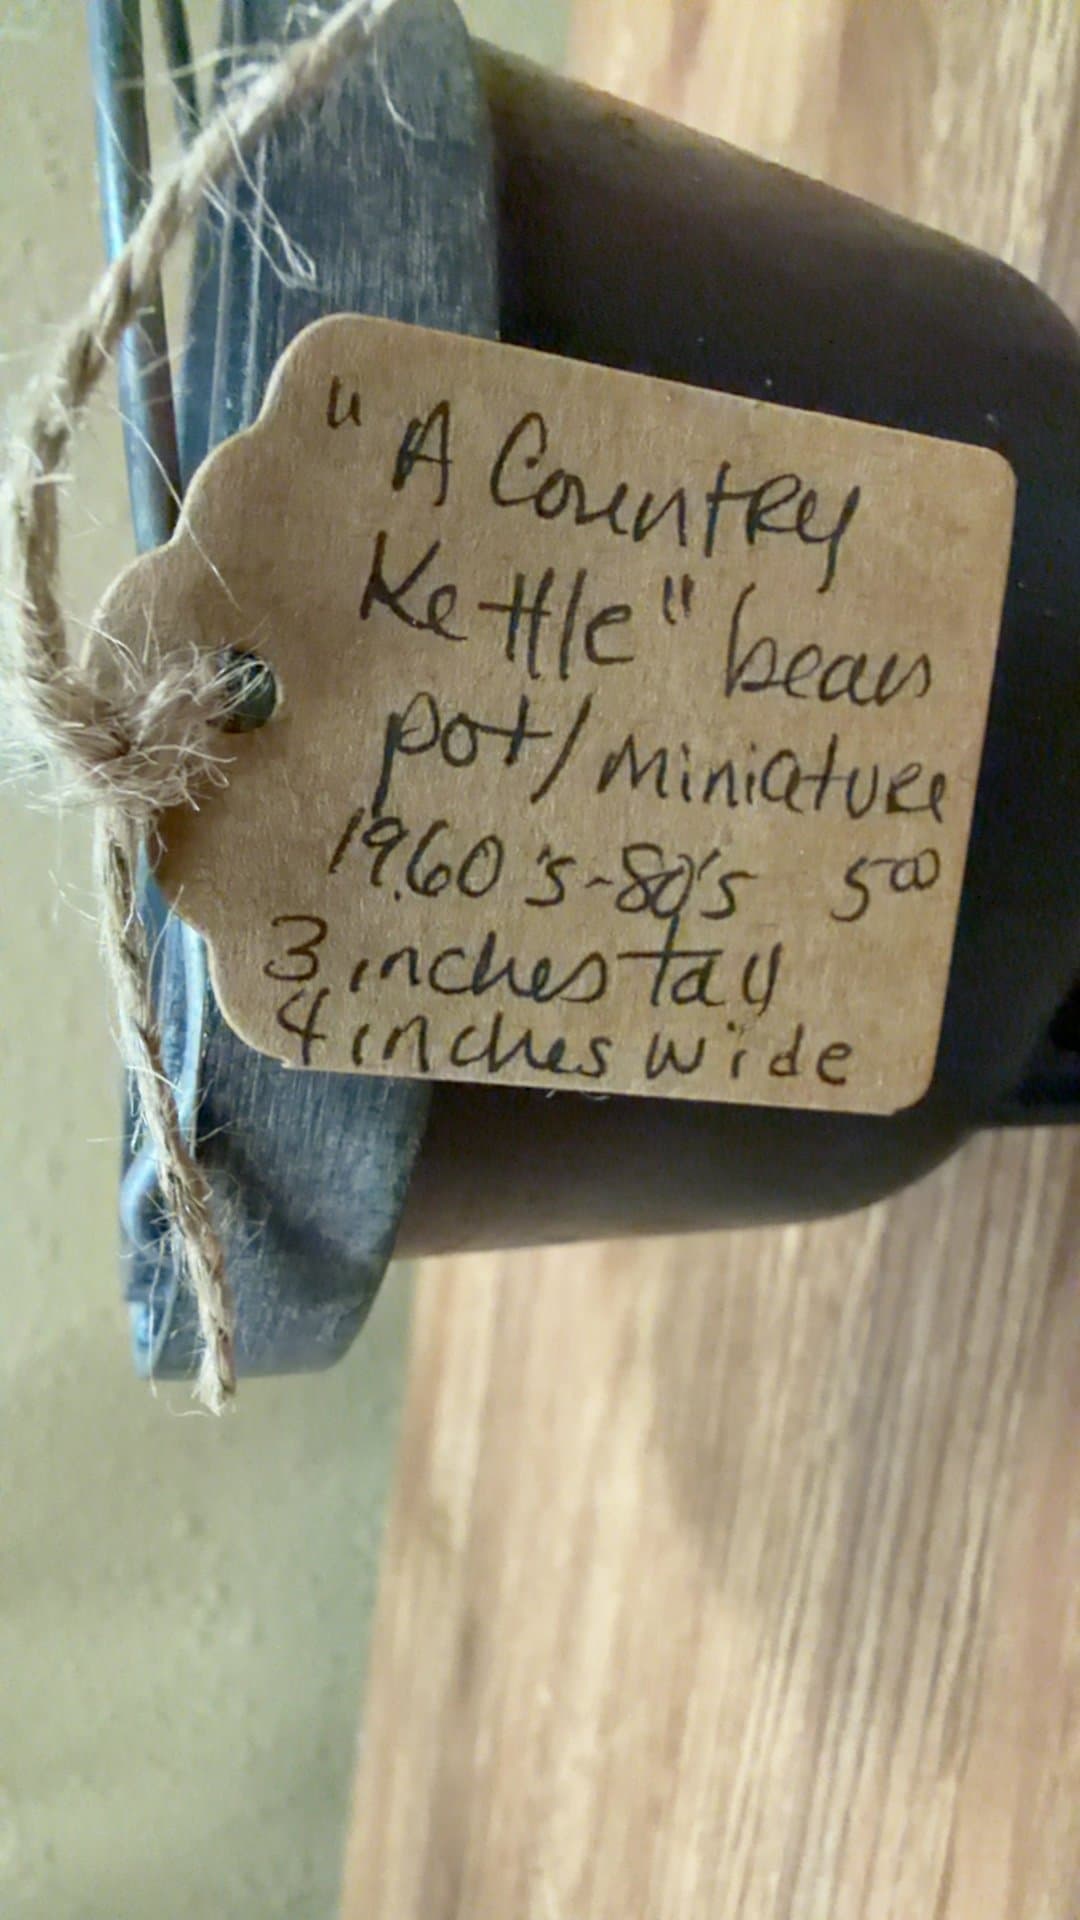 "A Country
Kettle" bean
pot/miniature
1960's-80's 500
3 inches tall
4 inches wide